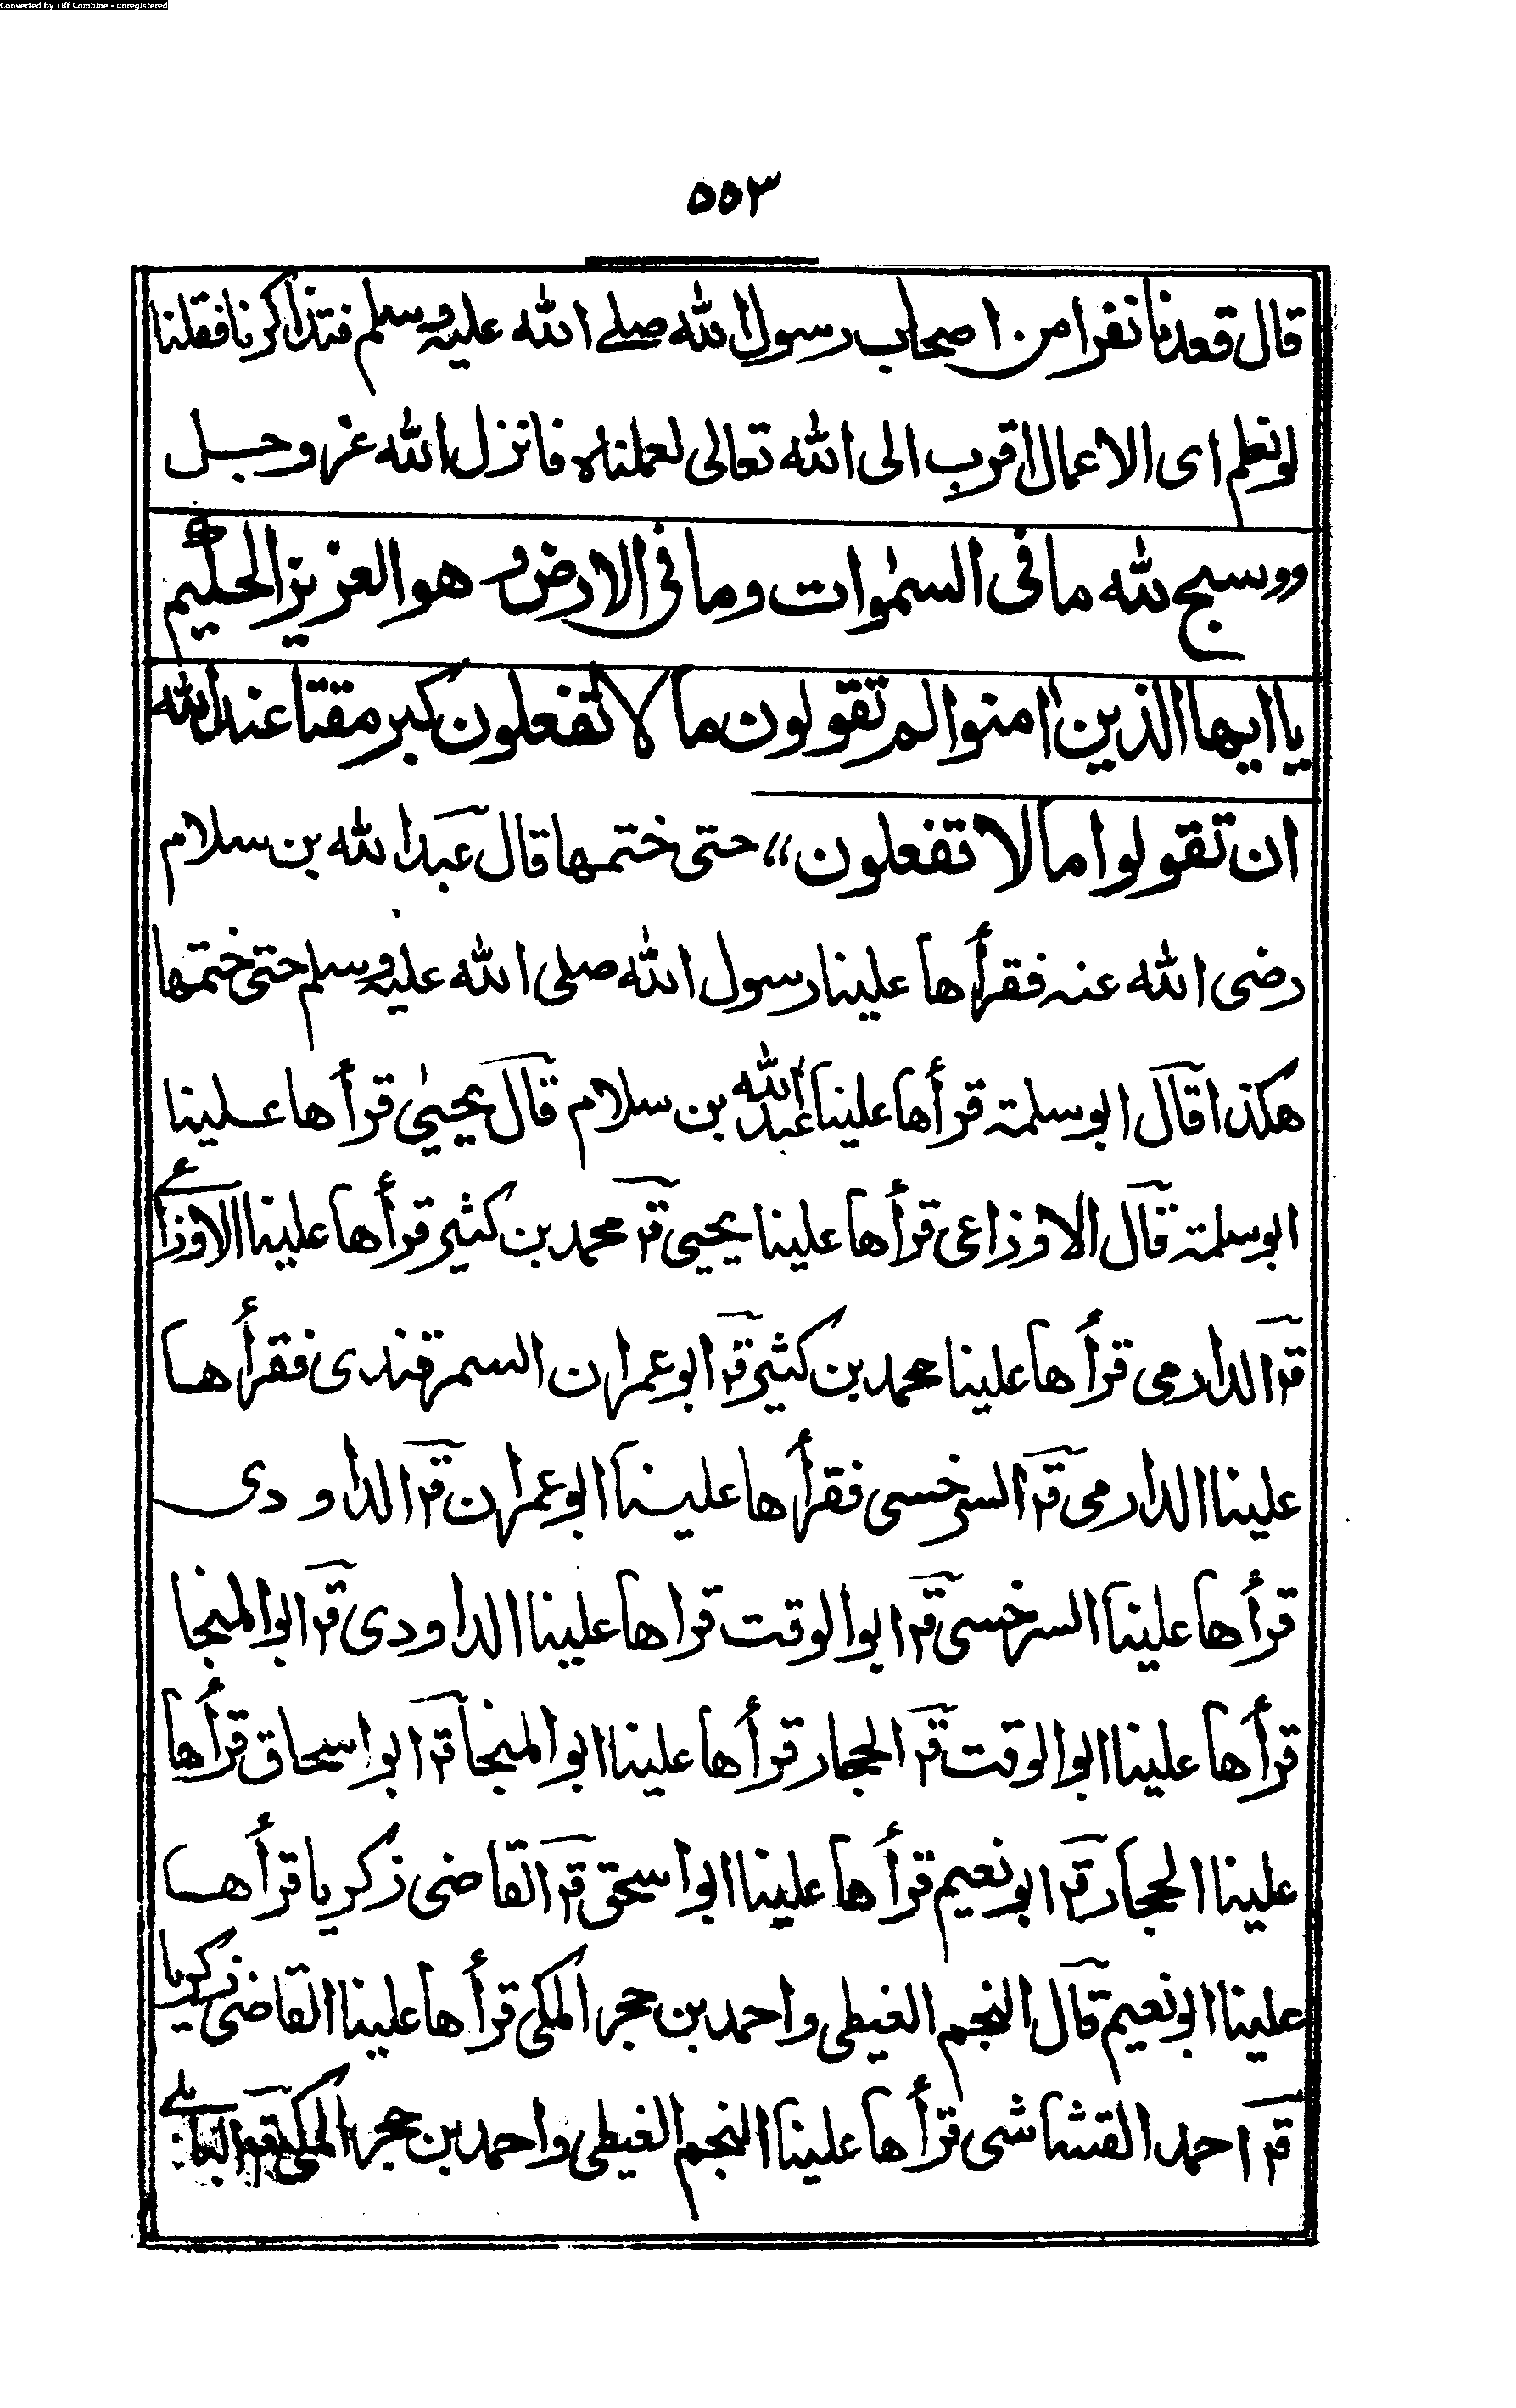 Converted by Tiff Combine - unregistered
٥٥٣
قال قعدنا نفرا من اصحاب رسول الله صلے الله عليه وسلم فتذاكرنا فقلنا
لو نعلم اى الاعمال اقرب الى الله تعالى لعملناه فانزل الله عز وجل
وو سبح لله ما فى السمٰوات وما فى الارض و هو العزيز الحكيم
يا ايها الذين اٰمنوا لم تقولون ما لا تفعلون كبر مقتا عند الله
ان تقولوا ما لا تفعلون ،، حتى ختمها قال عبد الله بن سلام
رضى الله عنه فقرأها علينا رسول الله صلى الله عليه وسلم حتى ختمها
هكذا قال ابو سلمة قرأها علينا عبد الله بن سلام قال يحيىٰ قرأها علينا
ابو سلمة قال الاوزاعى قرأها علينا يحيى قر محمد بن كثير قرأها علينا الاوزاعے
قر الدارمى قرأها علينا محمد بن كثير قر ابو عمران السمرقندى فقرأها
علينا الدارمى قر السرخسى فقرأها علينا ابو عمران قر الداودى
قرأها علينا السرخسى قر ابو الوقت قراها علينا الداودى قر ابو المنجا
قرأها علينا ابو الوقت قر الحجار قرأها علينا ابو المنجا قر ابو اسحاق قرأها
علينا الحجار قر ابو نعيم قرأها علينا ابو اسحق قر القاضى زكريا قرأها
علينا ابو نعيم قال النجم الغيطى واحمد بن حجر المكى قرأها علينا القاضى زكريا
قر احمد القشاشى قرأها علينا النجم الغيطى واحمد بن حجر المكى